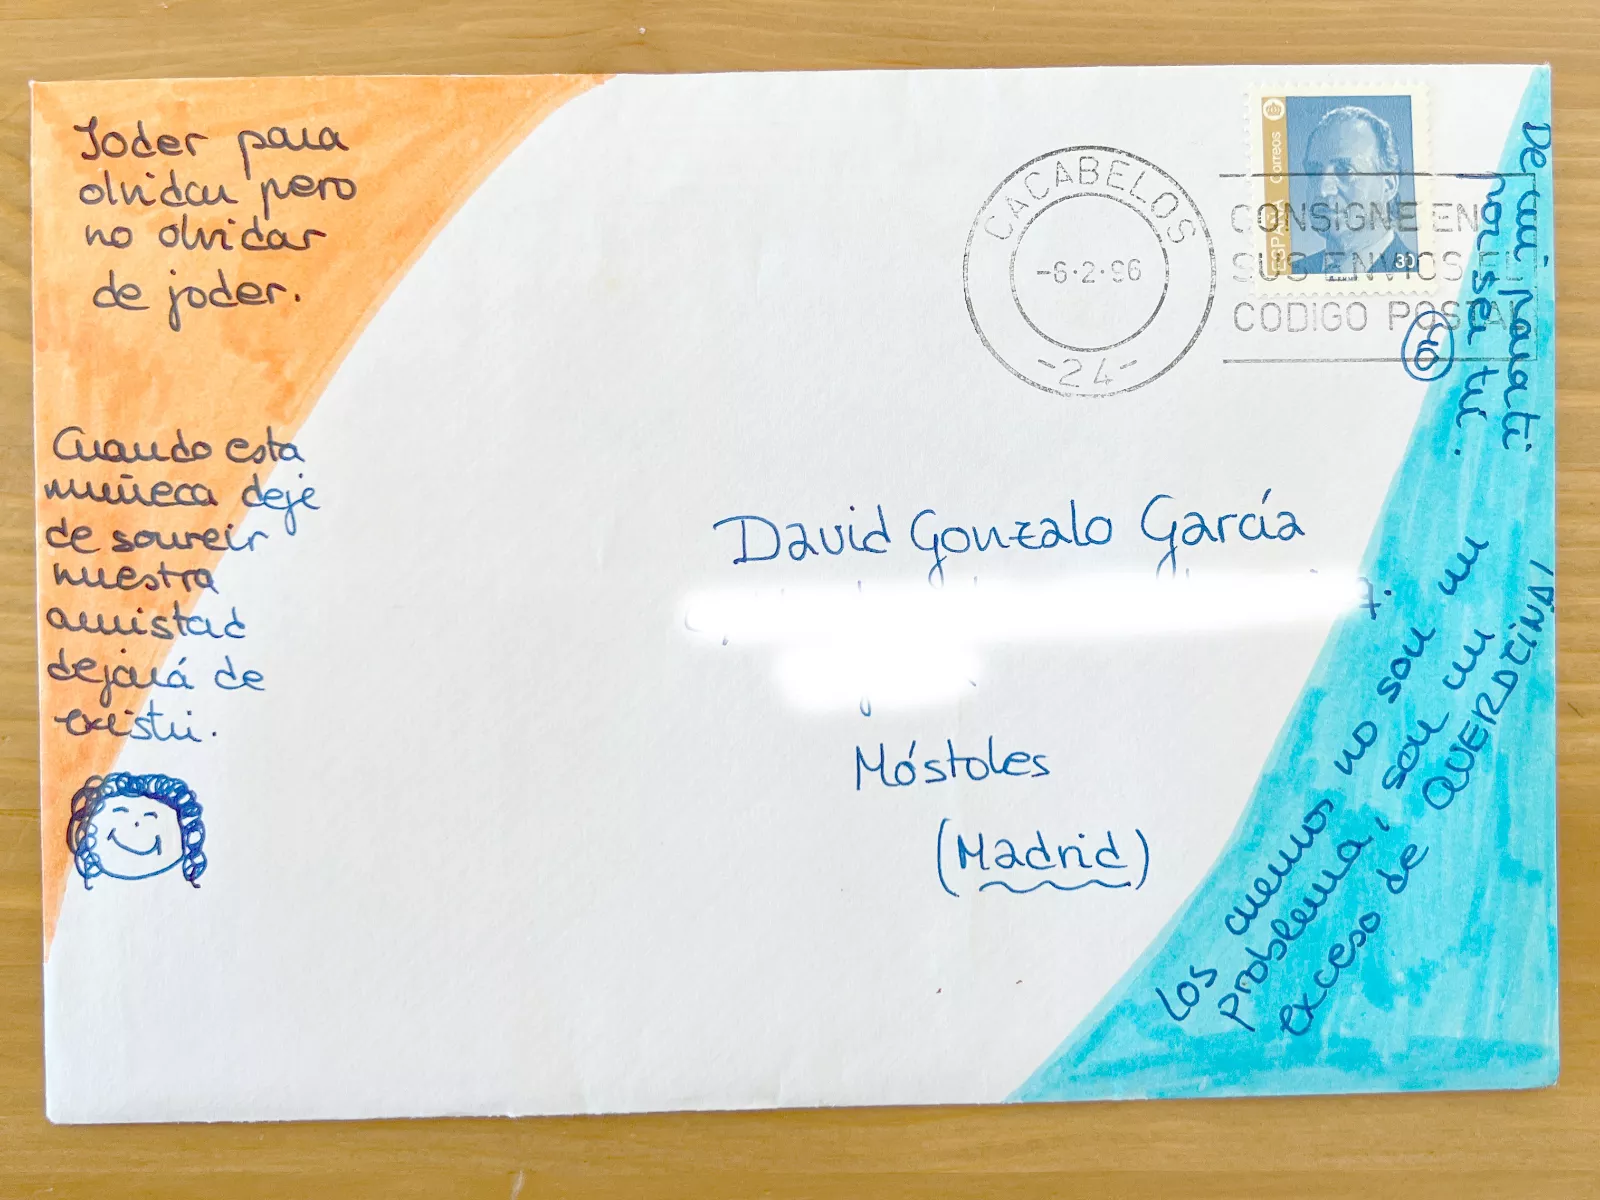 Joder para
olvidar pero
no olvidar
de joder.
Cuando esta
muñeca deje
de sonreir
nuestra
amistad
dejará de
existir.
CACABELOS
-6·2·96
-24-
ESPAÑA Correos
30
CONSIGNE EN
SUS ENVIOS EL
CODIGO POSTAL
De mi para ti
por ser tú.
40
David Gonzalo García
7.
Móstoles
(Madrid)
Los cuernos no son un
problema, son un
exceso de QUERATINA!